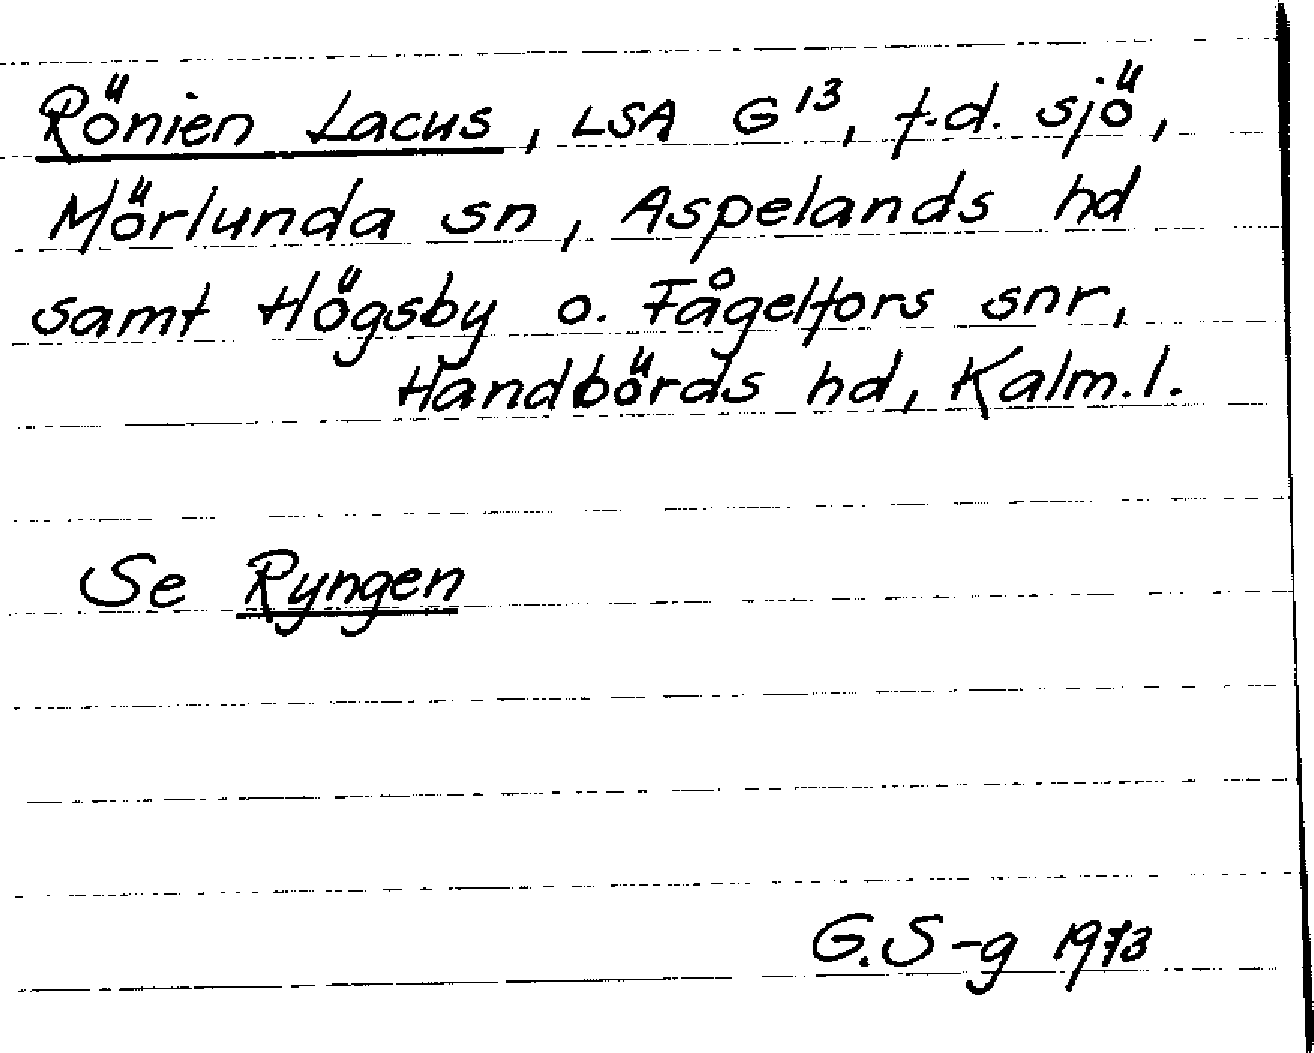 Rönien Lacus, LSA G¹³, f.d. sjö,
Mörlunda sn, Aspelands hd
samt Högsby o. Fågelfors snr,
Handbörds hd, Kalm.l.
Se Ryngen
G.S-g 1973